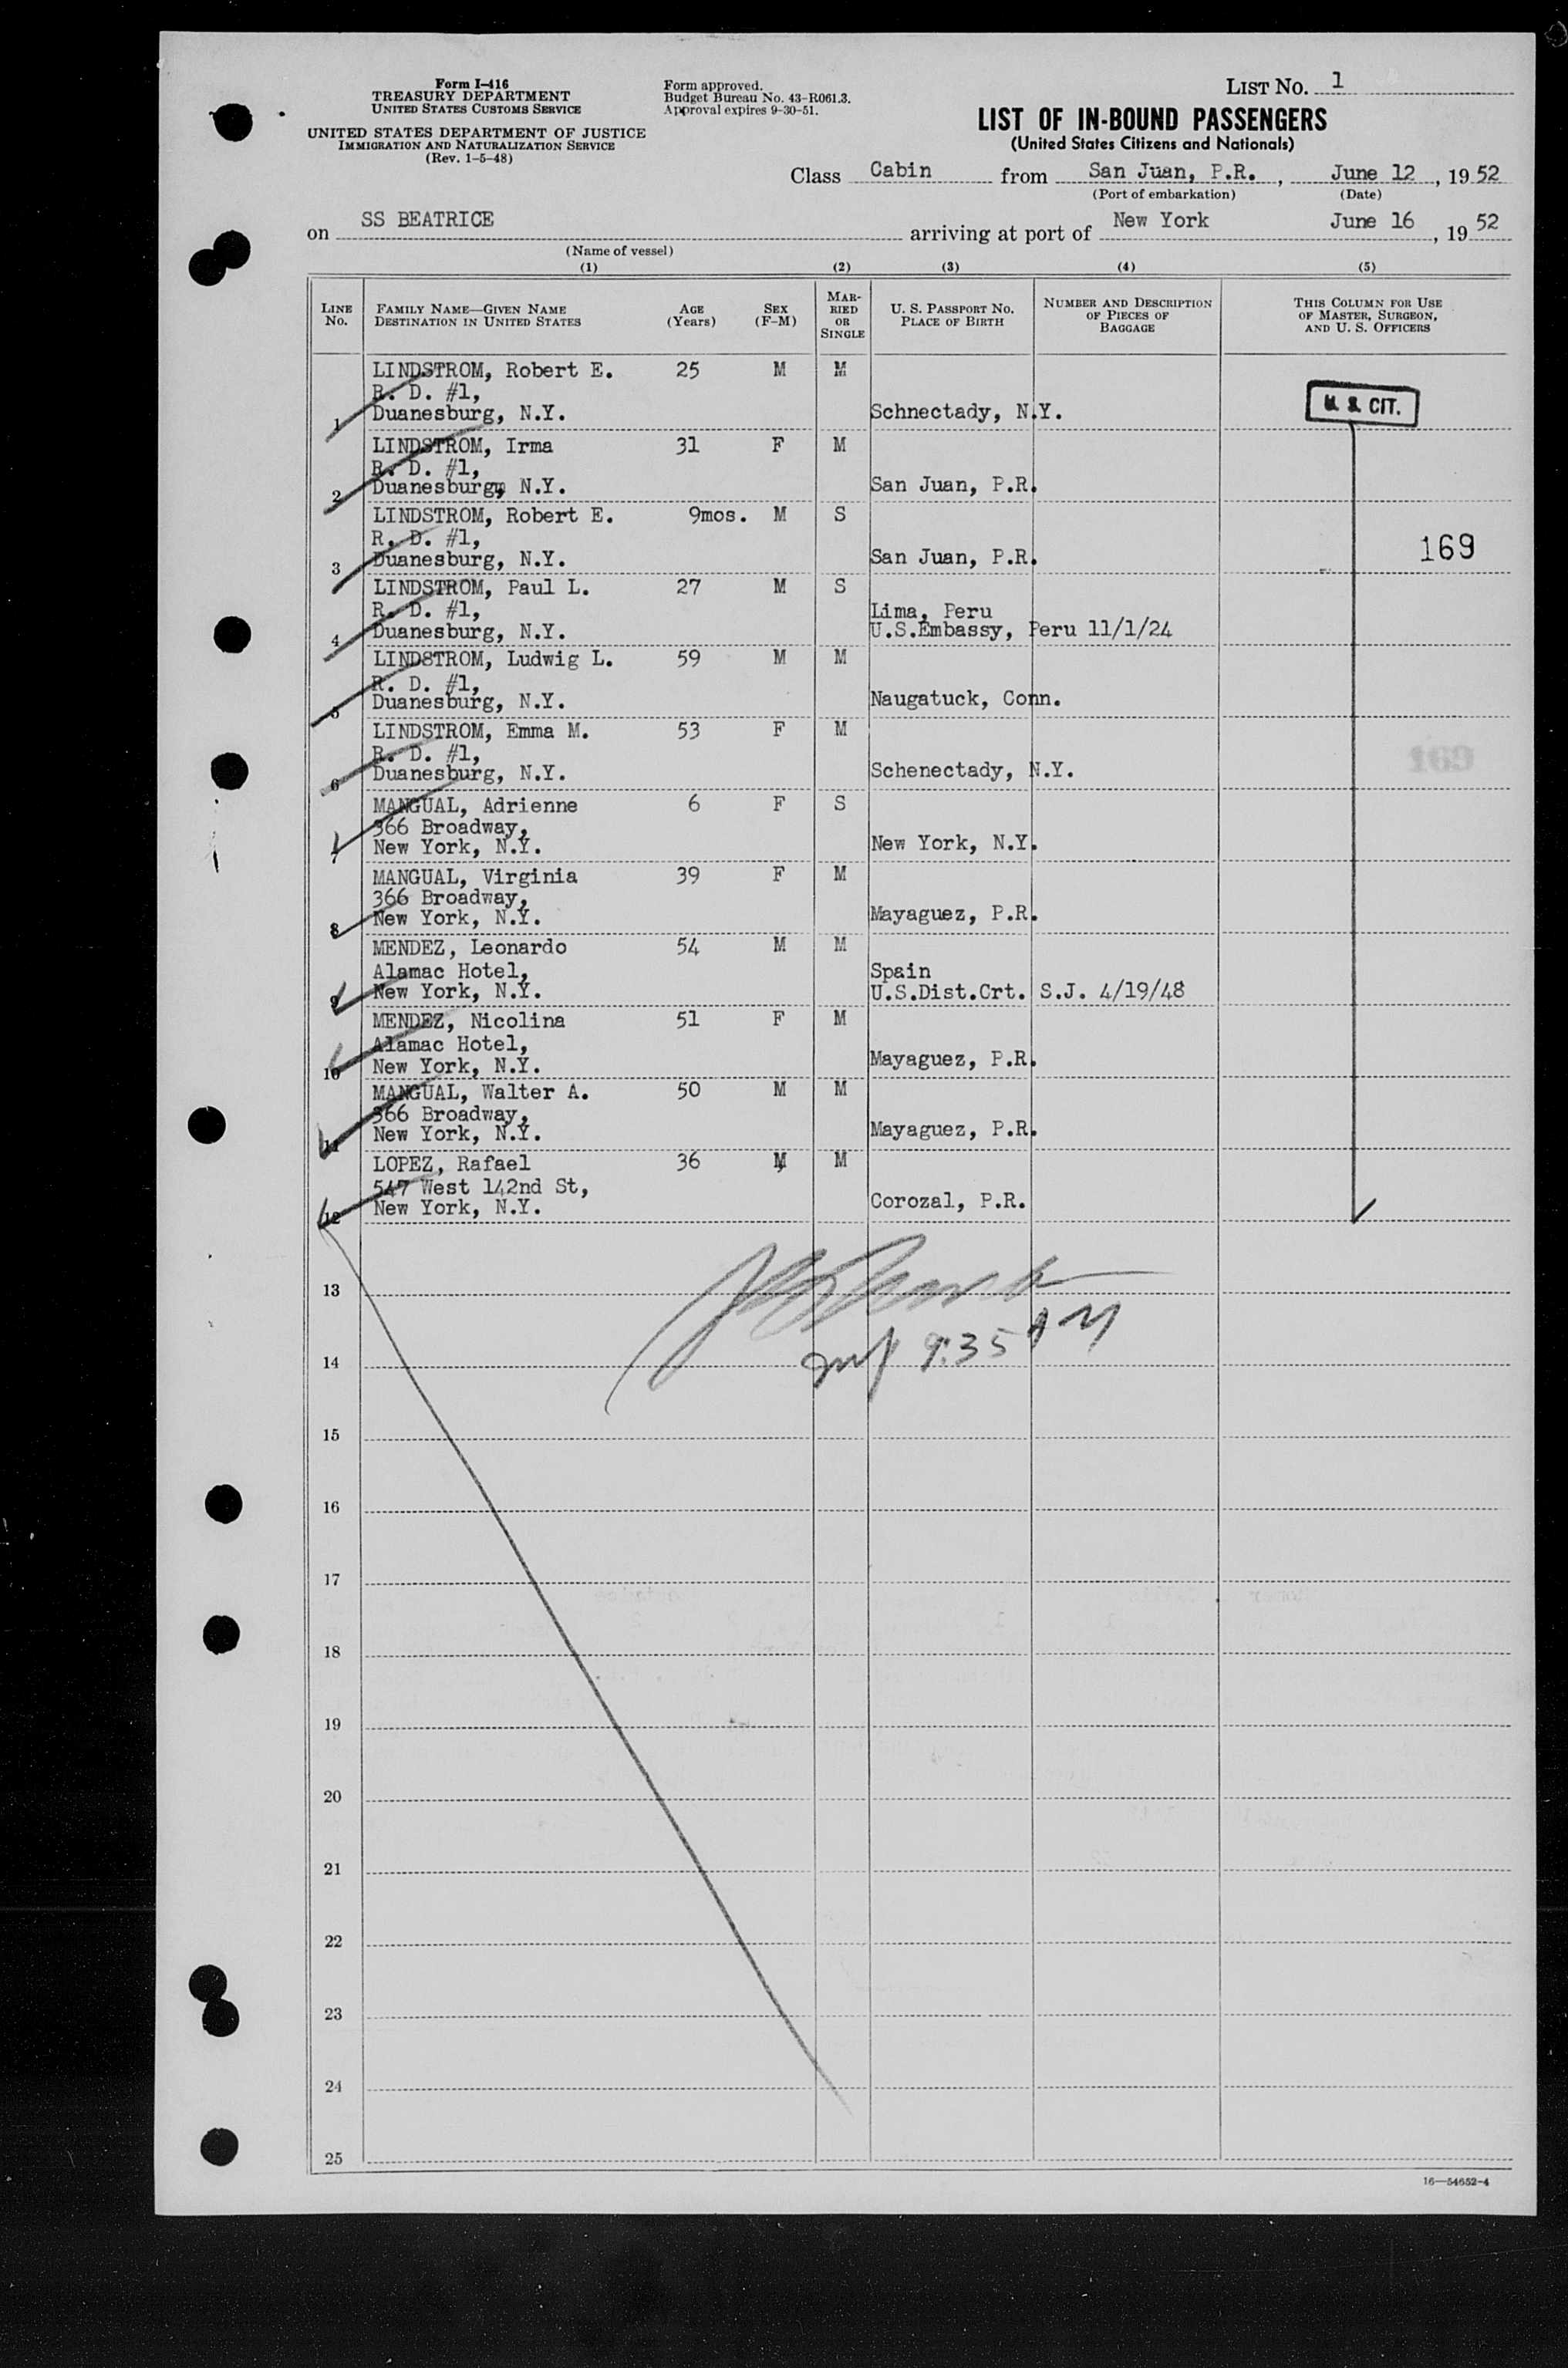 Form I-416
TREASURY DEPARTMENT
UNITED STATES CUSTOMS SERVICE
UNITED STATES DEPARTMENT OF JUSTICE
IMMIGRATION AND NATURALIZATION SERVICE
(Rev. 1-5-48)
Form approved.
Budget Bureau No. 43-R061.3.
Approval expires 9-30-51.
LIST NO. 1
LIST OF IN-BOUND PASSENGERS
(United States Citizens and Nationals)
Class Cabin from San Juan, P.R., June 12, 1952
(Port of embarkation) (Date)
on SS BEATRICE arriving at port of New York June 16, 1952
(Name of vessel)
(1) (2) (3) (4) (5)
LINE NO.
FAMILY NAME—GIVEN NAME
DESTINATION IN UNITED STATES
AGE (Years)
SEX (F-M)
MARRIED OR SINGLE
U. S. PASSPORT NO.
PLACE OF BIRTH
NUMBER AND DESCRIPTION OF PIECES OF BAGGAGE
THIS COLUMN FOR USE OF MASTER, SURGEON, AND U. S. OFFICERS
LINDSTROM, Robert E. 25 M M
R. D. #1,
1 Duanesburg, N.Y. Schnectady, N.Y.
U. S. CIT.
LINDSTROM, Irma 31 F M
R. D. #1,
2 Duanesburg, N.Y. San Juan, P.R.
LINDSTROM, Robert E. 9mos. M S
R. D. #1,
3 Duanesburg, N.Y. San Juan, P.R.
169
LINDSTROM, Paul L. 27 M S
R. D. #1, Lima, Peru
4 Duanesburg, N.Y. U.S.Embassy, Peru 11/1/24
LINDSTROM, Ludwig L. 59 M M
R. D. #1,
5 Duanesburg, N.Y. Naugatuck, Conn.
LINDSTROM, Emma M. 53 F M
R. D. #1,
6 Duanesburg, N.Y. Schenectady, N.Y.
169
MANGUAL, Adrienne 6 F S
366 Broadway,
7 New York, N.Y. New York, N.Y.
MANGUAL, Virginia 39 F M
366 Broadway,
8 New York, N.Y. Mayaguez, P.R.
MENDEZ, Leonardo 54 M M
Alamac Hotel, Spain
9 New York, N.Y. U.S.Dist.Crt. S.J. 4/19/48
MENDEZ, Nicolina 51 F M
Alamac Hotel,
10 New York, N.Y. Mayaguez, P.R.
MANGUAL, Walter A. 50 M M
366 Broadway,
11 New York, N.Y. Mayaguez, P.R.
LOPEZ, Rafael 36 M M
547 West 142nd St,
12 New York, N.Y. Corozal, P.R.
13
9:35 AM
14
15
16
17
18
19
20
21
22
23
24
25
16—54652-4